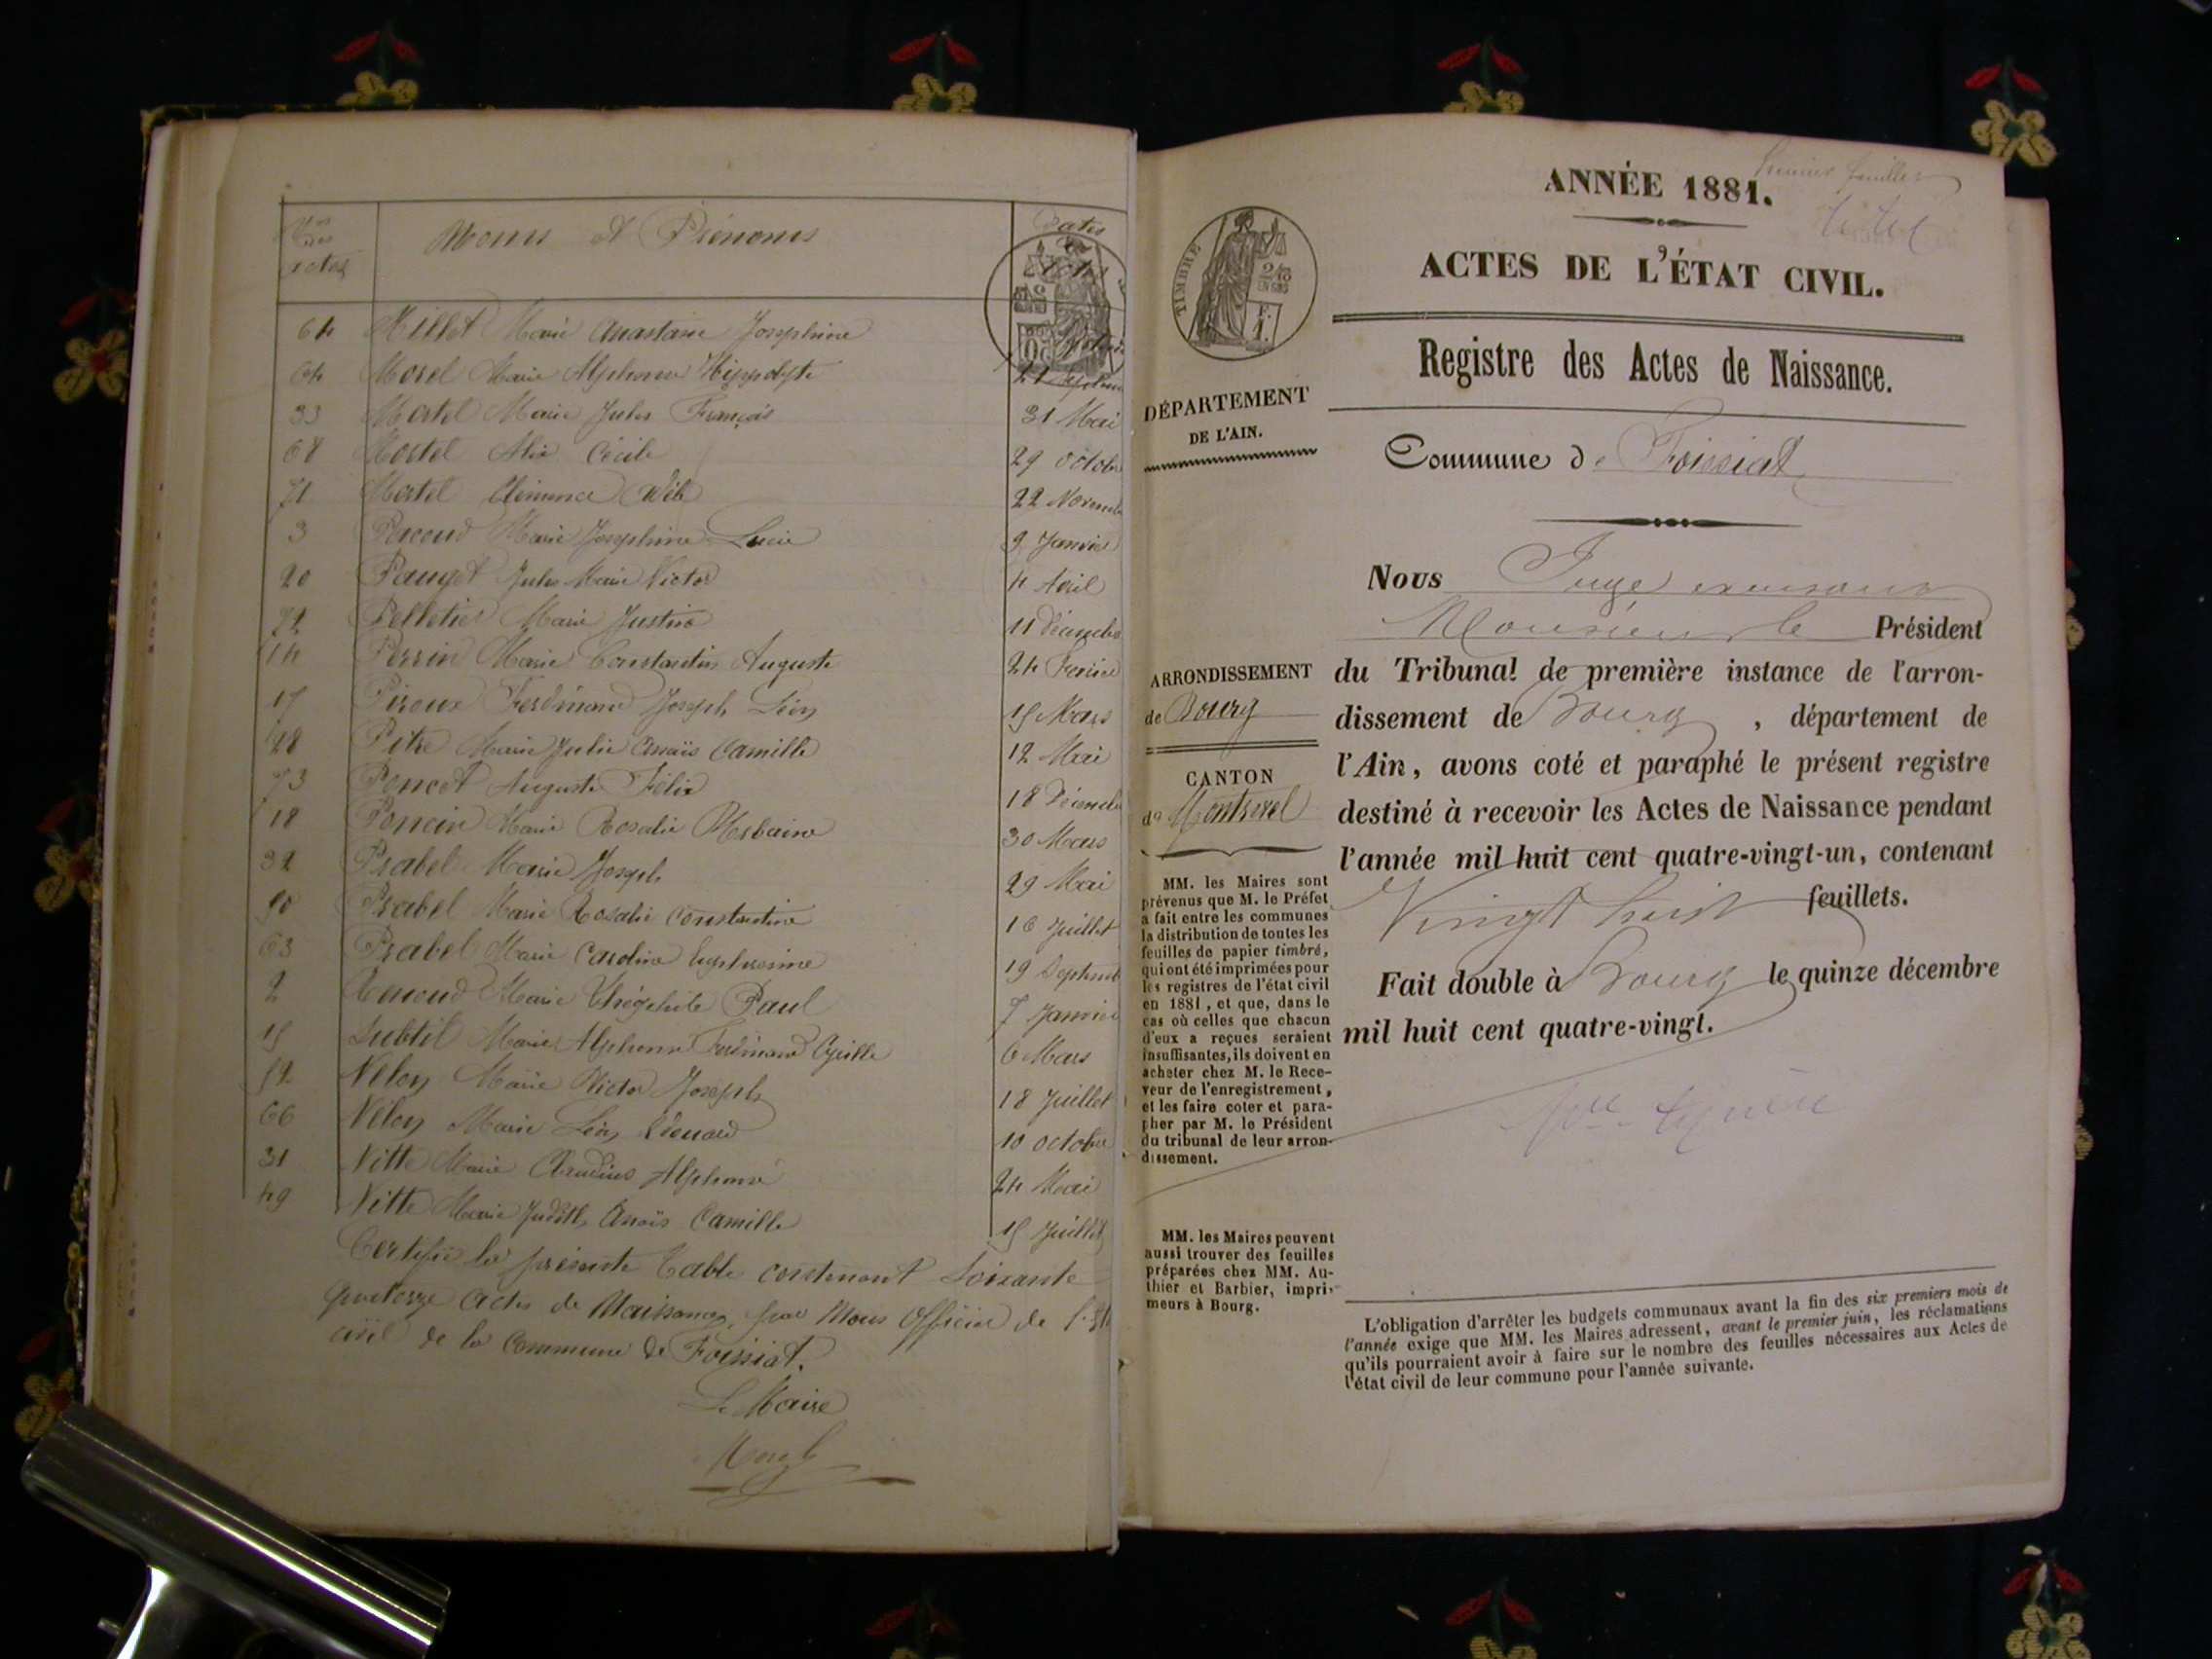 Nos des actes
Noms et Prénoms
Dates
64 Millet Marie Anastasie Joséphine
64 Morel Marie Alphonse Hippolyte 21
33 Mortel Marie Jules François 31 Mai
68 Mortel Alix Cécile 29 Octobre
71 Mortel Clémence Adèle 22 Novemb
3 Pacoud Marie Joséphine Lucie 9 Janvier
20 Pauget Jules Marie Victor 4 Avril
72 Pelletier Marie Justine 11 Décembre
14 Perrin Marie Constantin Auguste 24 Février
17 Piroux Ferdinand Joseph Léon 15 Mars
28 Pitre Marie Julie Anaïs Camille 12 Mai
73 Poncet Auguste Félix 18 Décemb
18 Poncin Marie Rosalie 30 Mars
32 Prabel Marie Joseph 29 Mai
50 Prabel Marie Rosalie Constantine 16 Juillet
63 Prabel Marie Caroline Euphrosine 19 Septemb
2 Marie Théophile Paul 7 Janvier
15 Subtil Marie Alphonse Ferdinand Cyrille 6 Mars
52 Velon Marie Victor Joseph 18 Juillet
66 Velon Marie Léon Edouard 10 Octobre
31 Vitte Marie Claudius Alphonse 24 Mai
49 Vitte Marie Judith Anaïs Camille 15 Juillet
Certifié la présente table contenant Soixante
quatorze actes de Naissances, par Nous Officier de l'
civil de la Commune de Foissiat.
Le Maire
Premier feuillet
ANNÉE 1881.
ACTES DE L'ÉTAT CIVIL.
Registre des Actes de Naissance.
TIMBRE
DÉPARTEMENT
DE L'AIN.
Commune de Foissiat
Nous Juge
Monsieur le Président
ARRONDISSEMENT
de Bourg
CANTON
de Montrevel
du Tribunal de première instance de l'arron-
dissement de Bourg, département de
l'Ain, avons coté et paraphé le présent registre
destiné à recevoir les Actes de Naissance pendant
l'année mil huit cent quatre-vingt-un, contenant
Vingt huit feuillets.
Fait double à Bourg le quinze décembre
mil huit cent quatre-vingt.
MM. les Maires sont
prévenus que M. le Préfet
a fait entre les communes
la distribution de toutes les
feuilles de papier timbré,
qui ont été imprimées pour
les registres de l'état civil
en 1881, et que, dans le
cas où celles que chacun
d'eux a reçues seraient
insuffisantes, ils doivent en
acheter chez M. le Rece-
veur de l'enregistrement,
et les faire coter et para-
pher par M. le Président
du tribunal de leur arron-
dissement.
MM. les Maires peuvent
aussi trouver des feuilles
préparées chez MM. Au-
thier et Barbier, impri-
meurs à Bourg.
L'obligation d'arrêter les budgets communaux avant la fin des six premiers mois de
l'année exige que MM. les Maires adressent, avant le premier juin, les réclamations
qu'ils pourraient avoir à faire sur le nombre des feuilles nécessaires aux Actes de
l'état civil de leur commune pour l'année suivante.